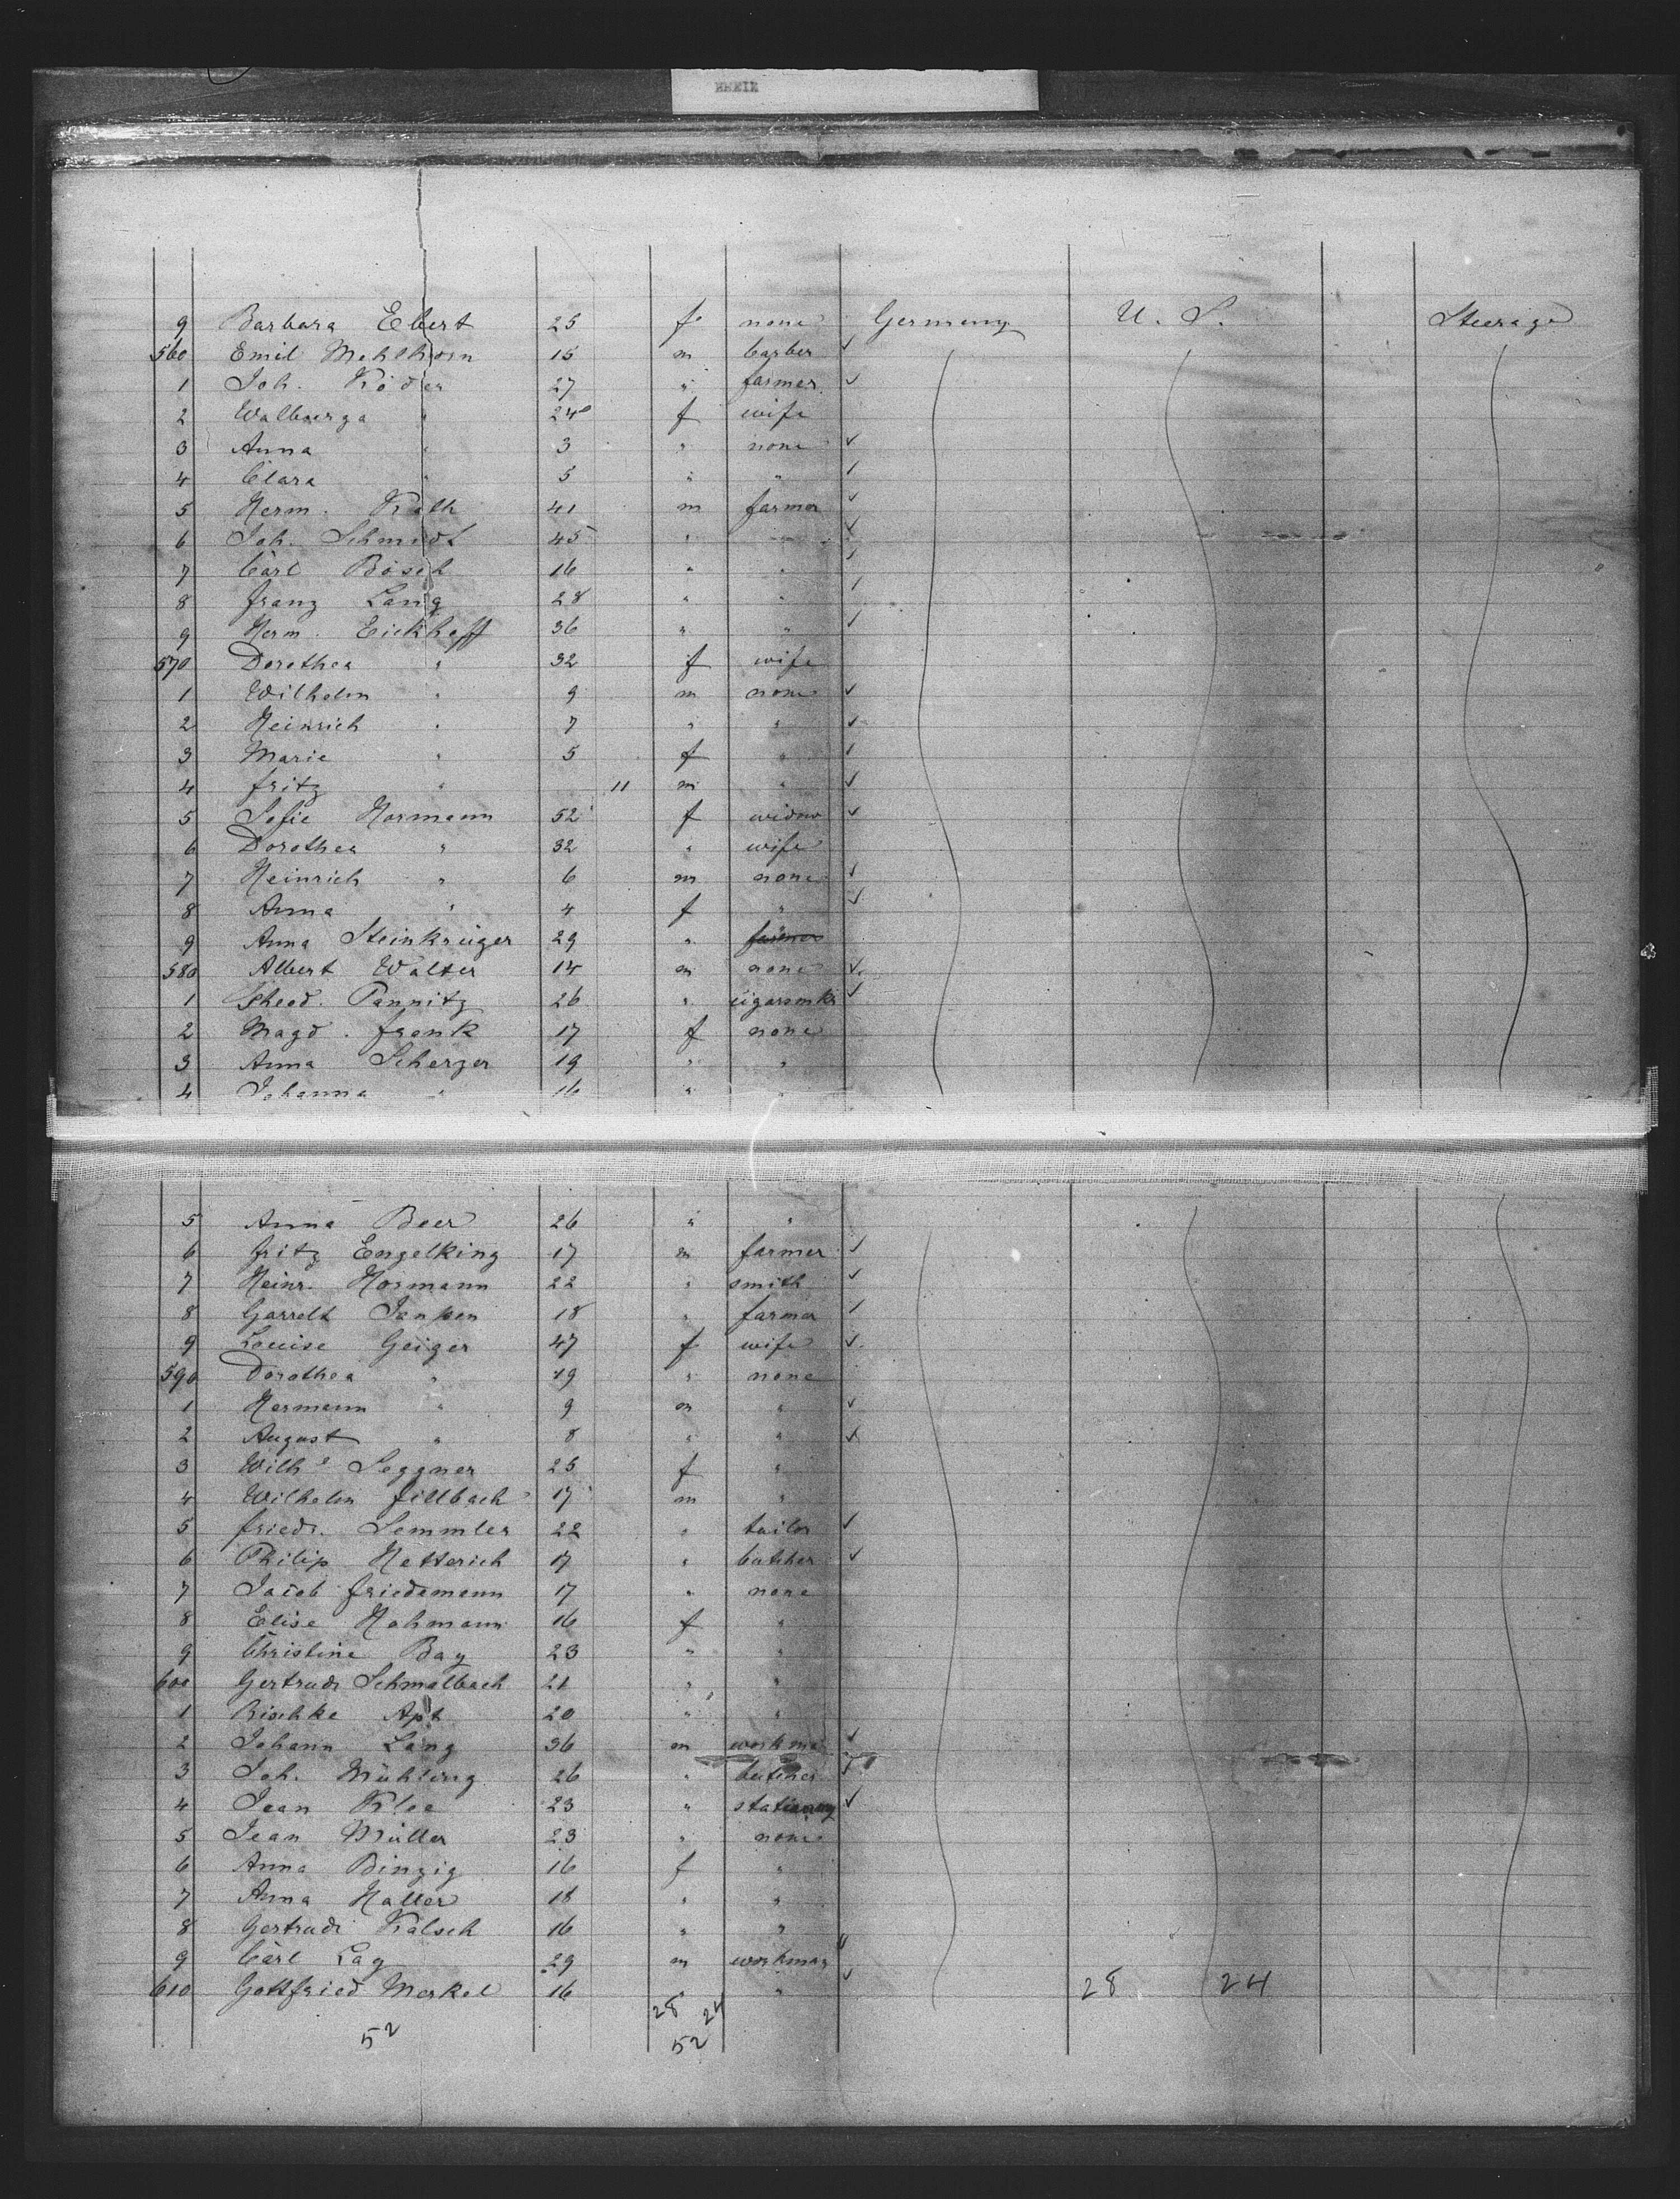 9 Barbara Ebert 25 f none Germany U. S. Steerage
560 Emil Mehlhorn 15 m barber ✓
1 Joh. Röder 27 " farmer ✓
2 Walburga " 24 f wife
3 Anna " 3 " none ✓
4 Clara " 5 " " ✓
5 Herm. Rath 41 m farmer ✓
6 Joh. Schmidt 45 " " ✓
7 Carl Bösch 16 " " ✓
8 Franz Lang 28 " " ✓
9 Herm. Eickhoff 36 " " ✓
570 Dorothea " 32 f wife
1 Wilhelm " 9 m none ✓
2 Heinrich " 7 " " ✓
3 Marie " 5 f " ✓
4 Fritz " 11 m " ✓
5 Sofie Hormann 52 f widow ✓
6 Dorothea " 32 " wife
7 Heinrich " 6 m none ✓
8 Anna " 4 f " ✓
9 Anna Steinkrüger 29 " farmer
580 Albert Walter 14 m none ✓
1 Theod. Pannitz 26 " cigarmkr ✓
2 Magd. Frank 17 f none
3 Anna Scherzer 19 " "
4 Johanna " 16 " "
5 Anna Beer 26 " "
6 Fritz Engelking 17 m farmer ✓
7 Heinr. Hormann 22 " smith ✓
8 Garrelt Janssen 18 " farmer ✓
9 Louise Geiger 47 f wife ✓
590 Dorothea " 19 " none
1 Hermann " 9 m " ✓
2 August " 8 " " ✓
3 Wilhe Seggner 25 f "
4 Wilhelm Fillbach 17 m "
5 Friedr. Semmler 22 " tailor ✓
6 Philip Hetterich 17 " butcher ✓
7 Jacob Friedemann 17 " none
8 Elise Hohmann 16 f "
9 Christine Bay 23 " "
600 Gertrude Schmalbach 21 " "
1 Apt 20 " "
2 Johann Lang 36 m workman ✓
3 Joh. Mühling 26 " butcher ✓
4 Jean Klee 23 " ✓
5 Jean Müller 23 " none
6 Anna Binzig 16 f "
7 Anna Haller 18 " "
8 Gertrude Kalsch 16 " "
9 Carl Lay 29 m workman
610 Gottfried Merkel 16 " " ✓ 28 24
28 24
52 52